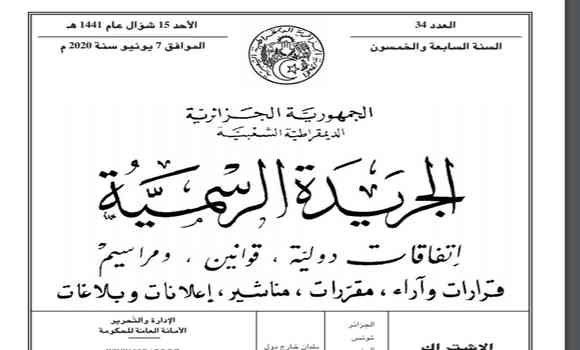 العدد 34
الأحد 15 شوّال عام 1441 هـ
السنة السابعة والخمسون
الموافق 7 يونيو سنة 2020 م
الجمهورية الجزائرية
الديمقراطية الشعبية
الجريدة الرسمية
إتفاقات دولية ، قوانين ، ومراسيم
قرارات وآراء ، مقررات ، مناشير ، إعلانات وبلاغات
الإدارة والتحرير
الأمانة العامة للحكومة
الجزائر
تونس
بلدان خارج دول
الاشتراك